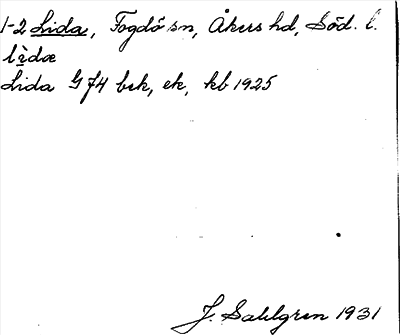 1-2 Lida, Fogdö sn, Åkers hd, Söd. l.
lìdæ
Lida G 74 bek, ek, kb 1925
J. Sahlgren 1931